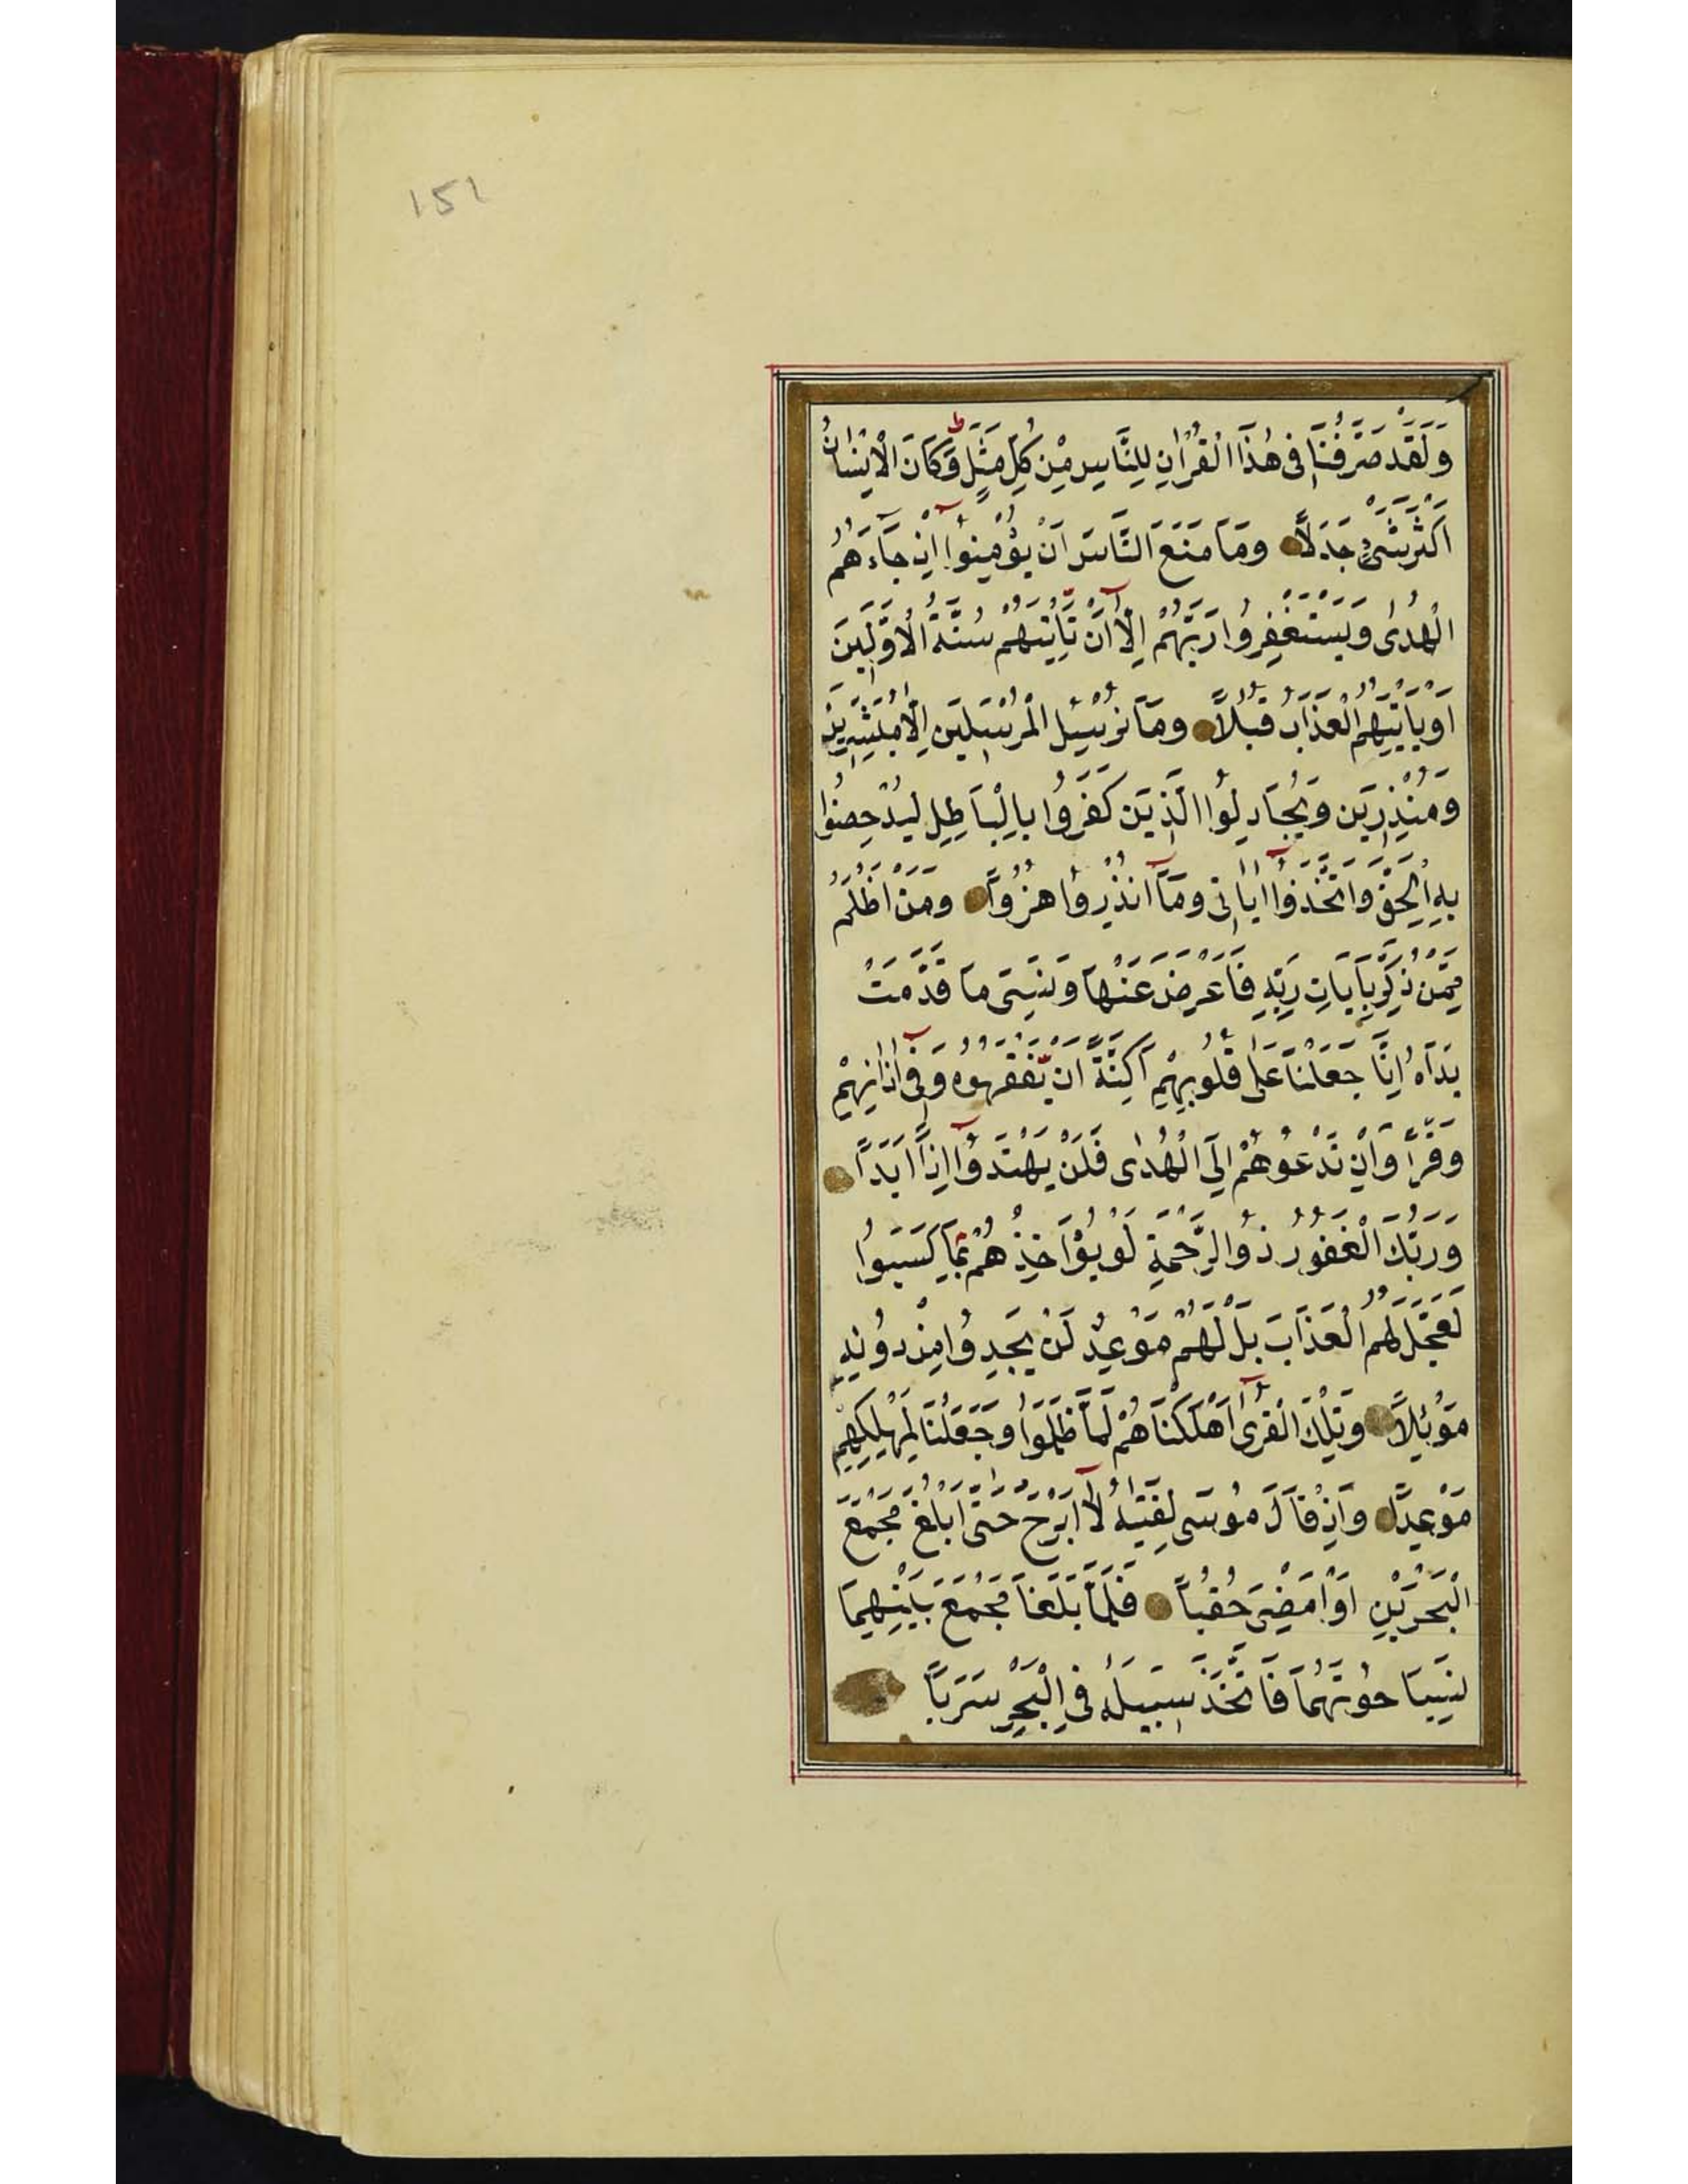 151
وَلَقَدْ صَرَّفْنَا فِى هٰذَا الْقُرْاٰنِ لِلنَّاسِ مِنْ كُلِّ مَثَلٍ ط وَكَانَ الْاِنْسَانُ
اَكْثَرَ شَىْءٍ جَدَلًا وَمَا مَنَعَ النَّاسَ اَنْ يُؤْمِنُوا اِذْ جَاءَهُمُ
الْهُدٰى وَيَسْتَغْفِرُوا رَبَّهُمْ اِلَّا اَنْ تَاْتِيَهُمْ سُنَّةُ الْاَوَّلِينَ
اَوْ يَاْتِيَهُمُ الْعَذَابُ قُبُلًا وَمَا نُرْسِلُ الْمُرْسَلِينَ اِلَّا مُبَشِّرِينَ
وَمُنْذِرِينَ وَيُجَادِلُوا الَّذِينَ كَفَرُوا بِالْبَاطِلِ لِيُدْحِضُوا
بِهِ الْحَقَّ وَاتَّخَذُوا اٰيَاتِى وَمَا اُنْذِرُوا هُزُوًا وَمَنْ اَظْلَمُ
مِمَّنْ ذُكِّرَ بِاٰيَاتِ رَبِّهِ فَاَعْرَضَ عَنْهَا وَنَسِىَ مَا قَدَّمَتْ
يَدَاهُ اِنَّا جَعَلْنَا عَلٰى قُلُوبِهِمْ اَكِنَّةً اَنْ يَفْقَهُوهُ وَفِى اٰذَانِهِمْ
وَقْرًا وَاِنْ تَدْعُوهُمْ اِلَى الْهُدٰى فَلَنْ يَهْتَدُوا اِذًا اَبَدًا
وَرَبُّكَ الْغَفُورُ ذُو الرَّحْمَةِ لَوْ يُؤَاخِذُهُمْ بِمَا كَسَبُوا
لَعَجَّلَ لَهُمُ الْعَذَابَ بَلْ لَهُمْ مَوْعِدٌ لَنْ يَجِدُوا مِنْ دُونِهِ
مَوْئِلًا وَتِلْكَ الْقُرٰى اَهْلَكْنَاهُمْ لَمَّا ظَلَمُوا وَجَعَلْنَا لِمَهْلِكِهِمْ
مَوْعِدًا وَاِذْ قَالَ مُوسٰى لِفَتٰيهُ لَا اَبْرَحُ حَتّٰى اَبْلُغَ مَجْمَعَ
الْبَحْرَيْنِ اَوْ اَمْضِىَ حُقُبًا فَلَمَّا بَلَغَا مَجْمَعَ بَيْنِهِمَا
نَسِيَا حُوتَهُمَا فَاتَّخَذَ سَبِيلَهُ فِى الْبَحْرِ سَرَبًا